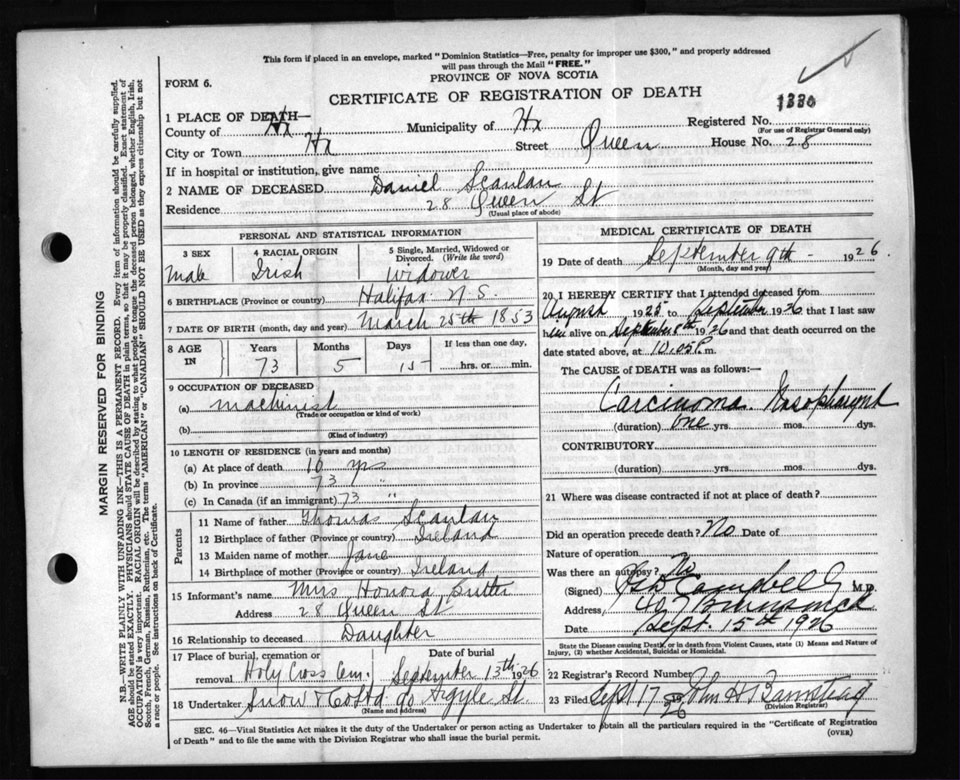 This form if placed in an envelope, marked "Dominion Statistics—Free, penalty for improper use $300," and properly addressed
will pass through the Mail "FREE."
FORM 6.
PROVINCE OF NOVA SCOTIA
CERTIFICATE OF REGISTRATION OF DEATH
1330
1 PLACE OF DEATH—
Registered No.
(For use of Registrar General only)
County of Hx Municipality of Hx
City or Town Hx Street Queen House No. 28
If in hospital or institution, give name
2 NAME OF DECEASED Daniel Scanlan
Residence 28 Queen St
(Usual place of abode)
PERSONAL AND STATISTICAL INFORMATION
3 SEX 4 RACIAL ORIGIN 5 Single, Married, Widowed or Divorced. (Write the word)
Male Irish Widower
6 BIRTHPLACE (Province or country) Halifax N.S.
7 DATE OF BIRTH (month, day and year) March 25th 1853
8 AGE IN Years Months Days If less than one day,
73 5 15 hrs. or min.
9 OCCUPATION OF DECEASED
(a) Machinist
(Trade or occupation or kind of work)
(b)
(Kind of industry)
10 LENGTH OF RESIDENCE (in years and months)
(a) At place of death 10 yrs
(b) In province 73 "
(c) In Canada (if an immigrant) 73 "
Parents
11 Name of father Thomas Scanlan
12 Birthplace of father (Province or country) Ireland
13 Maiden name of mother Jane
14 Birthplace of mother (Province or country) Ireland
15 Informant's name Mrs Honora
Address 28 Queen St
16 Relationship to deceased Daughter
17 Place of burial, cremation or removal Holy Cross Cem. Date of burial September 13th 1926
18 Undertaker Snow & Co Ltd 90 Argyle St.
(Name and address)
MEDICAL CERTIFICATE OF DEATH
19 Date of death September 9th - 1926
(Month, day and year)
20 I HEREBY CERTIFY that I attended deceased from
August 1925 to September 1926 that I last saw
him alive on September 8th 1926 and that death occurred on
date stated above, at 10.05 P. m.
The CAUSE of DEATH was as follows:—
Carcinoma
(duration) one yrs. mos. dys.
CONTRIBUTORY
(duration) yrs. mos. dys.
21 Where was disease contracted if not at place of death?
Did an operation precede death? No Date of
Nature of operation
Was there an autopsy? No
(Signed) Campbell M.D.
Address
Date Sept. 15th 1926
State the Disease causing Death, or in death from Violent Causes, state (1) Means and Nature of
Injury, (2) whether Accidental, Suicidal or Homicidal.
22 Records Record Number
23 Filed Sept 17 1926 John H Barnstead
(Division Registrar)
SEC. 46—Vital Statistics Act makes it the duty of the Undertaker or person acting as Undertaker to obtain all the particulars required in the "Certificate of Registration
of Death" and to file the same with the Division Registrar who shall issue the burial permit.
(OVER)
MARGIN RESERVED FOR BINDING
N.B.—WRITE PLAINLY WITH UNFADING INK—THIS IS A PERMANENT RECORD. Every item of information should be carefully supplied.
AGE should be stated EXACTLY. PHYSICIANS should STATE CAUSE OF DEATH in plain terms, so that it may be properly classified. Exact statement of
OCCUPATION is very important. RACIAL ORIGIN will be described by stating to what people or tongue the deceased person belonged, whether English, Irish,
Scotch, French, German, Russian, Ruthenian, etc. The terms "AMERICAN" or "CANADIAN" SHOULD NOT BE USED as they express citizenship but not
a race or people. See instructions on back of Certificate.